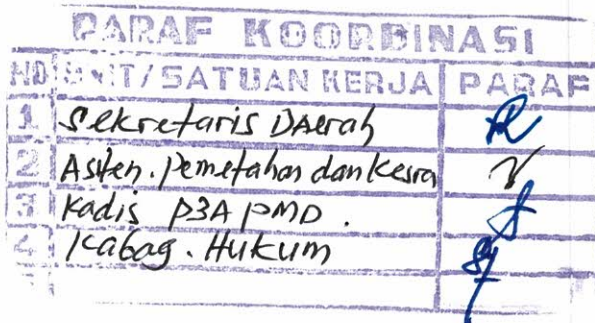 PARAF KOORDINASI
NO UNIT/SATUAN KERJA PARAF
1 Sekretaris DAerah
2 Asiten. Pemetahan dan Kesra
3 Kadis P3APMD.
4 Kabag. Hukum